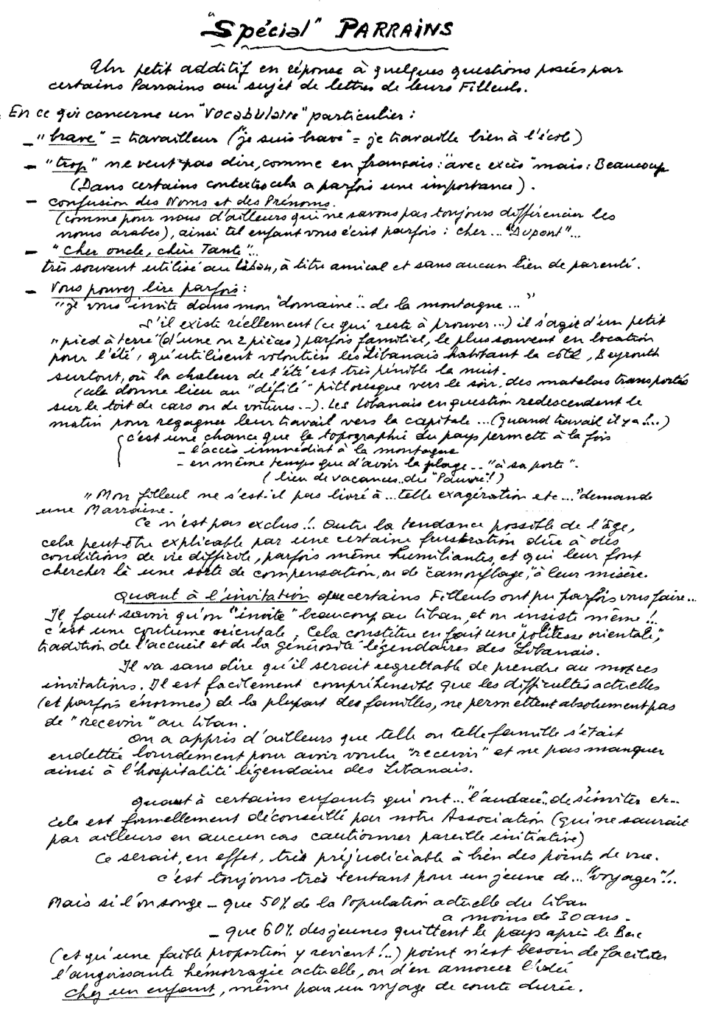 "Spécial" PARRAINS
Un petit additif en réponse à quelques questions posées par
certains Parrains au sujet de lettres de leurs Filleuls.
En ce qui concerne un "Vocabulaire" particulier :
- "brave" = travailleur ("je suis brave" = je travaille bien à l'école)
- "trop" ne veut pas dire, comme en français : "avec excès" mais : Beaucoup
(Dans certains contextes cela a parfois une importance).
- Confusion des Noms et des Prénoms.
(comme pour nous d'ailleurs qui ne savons pas toujours différencier les
noms arabes), ainsi tel enfant vous écrit parfois : cher... "Dupont"...
- "Cher oncle, chère Tante"...
très souvent utilisé au Liban, à titre amical et sans aucun lien de parenté.
- Vous pouvez lire parfois :
"je vous invite dans mon "domaine".. de la montagne..."
S'il existe réellement (ce qui reste à prouver...) il s'agit d'un petit
"pied à terre" (d'une ou 2 pièces) parfois familial, le plus souvent en location
pour l'été, qu'utilisent volontiers les Libanais habitant la côte, Beyrouth
surtout, où la chaleur de l'été est très pénible la nuit.
(cela donne lieu au "défilé" pittoresque vers le soir, des matelas transportés
sur le toit de cars ou de voitures...). Les Libanais en question redescendent le
matin pour regagner leur travail vers la capitale... (quand travail il y a !...)
(c'est une chance que la topographie du pays permette à la fois
- l'accès immédiat à la montagne
- en même temps que d'avoir la plage... "à sa porte".
(lieu de vacances du "Pauvre" !)
"Mon filleul ne s'est-il pas livré à... telle exagération etc..." demande
une Marraine.
Ce n'est pas exclus !.. Outre la tendance possible de l'âge,
cela peut-être explicable par une certaine frustration dûe à des
conditions de vie difficile, parfois même humiliantes, et qui leur font
chercher là une sorte de compensation, ou de "camouflage," à leur misère.
Quant à l'invitation que certains Filleuls ont pu parfois vous faire...
Il faut savoir qu'on "invite" beaucoup au Liban, et on insiste même !..
c'est une coutume orientale, Cela constitue en fait une "politesse orientale",
tradition de l'accueil et de la générosité légendaires des Libanais.
Il va sans dire qu'il serait regrettable de prendre au mot ces
invitations. Il est facilement compréhensible que les difficultés actuelles
(et parfois énormes) de la plupart des familles, ne permettent absolument pas
de "recevoir" au Liban.
On a appris d'ailleurs que telle ou telle famille s'était
endettée lourdement pour avoir voulu "recevoir" et ne pas manquer
ainsi à l'hospitalité légendaire des Libanais.
Quant à certains enfants qui ont... "l'audace".. de s'inviter etc...
Cela est formellement déconseillé par notre Association (qui ne saurait
par ailleurs en aucun cas cautionner pareille initiative)
Ce serait, en effet, très préjudiciable à bien des points de vue.
C'est toujours très tentant pour un jeune de... "voyager" !..
Mais si l'on songe - que 50% de la Population actuelle du Liban
a moins de 30 ans -
- que 60% des jeunes quittent le pays après le Bac
(et qu'une faible proportion y revient !...) point n'est besoin de faciliter
l'angoissante hémorragie actuelle, ou d'en amorcer l'idée
chez un enfant, même pour un voyage de courte durée.